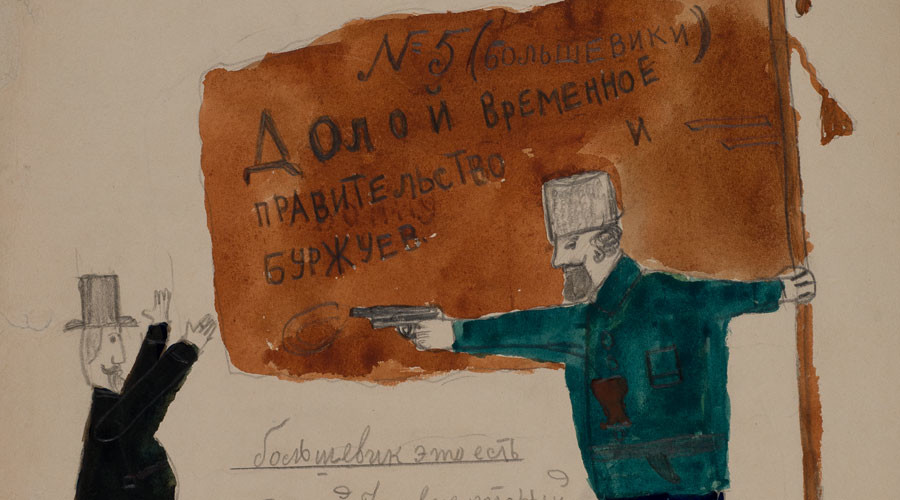 № 5 (БОЛЬШЕВИКИ)
ДОЛОЙ ВРЕМЕННОЕ
ПРАВИТЕЛЬСТВО И
БУРЖУЕВ
большевик это есть